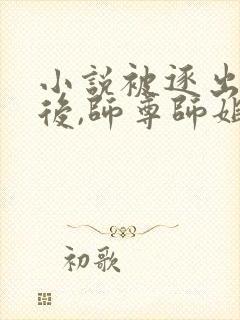 小說被逐出
後,師尊師姐
初歌